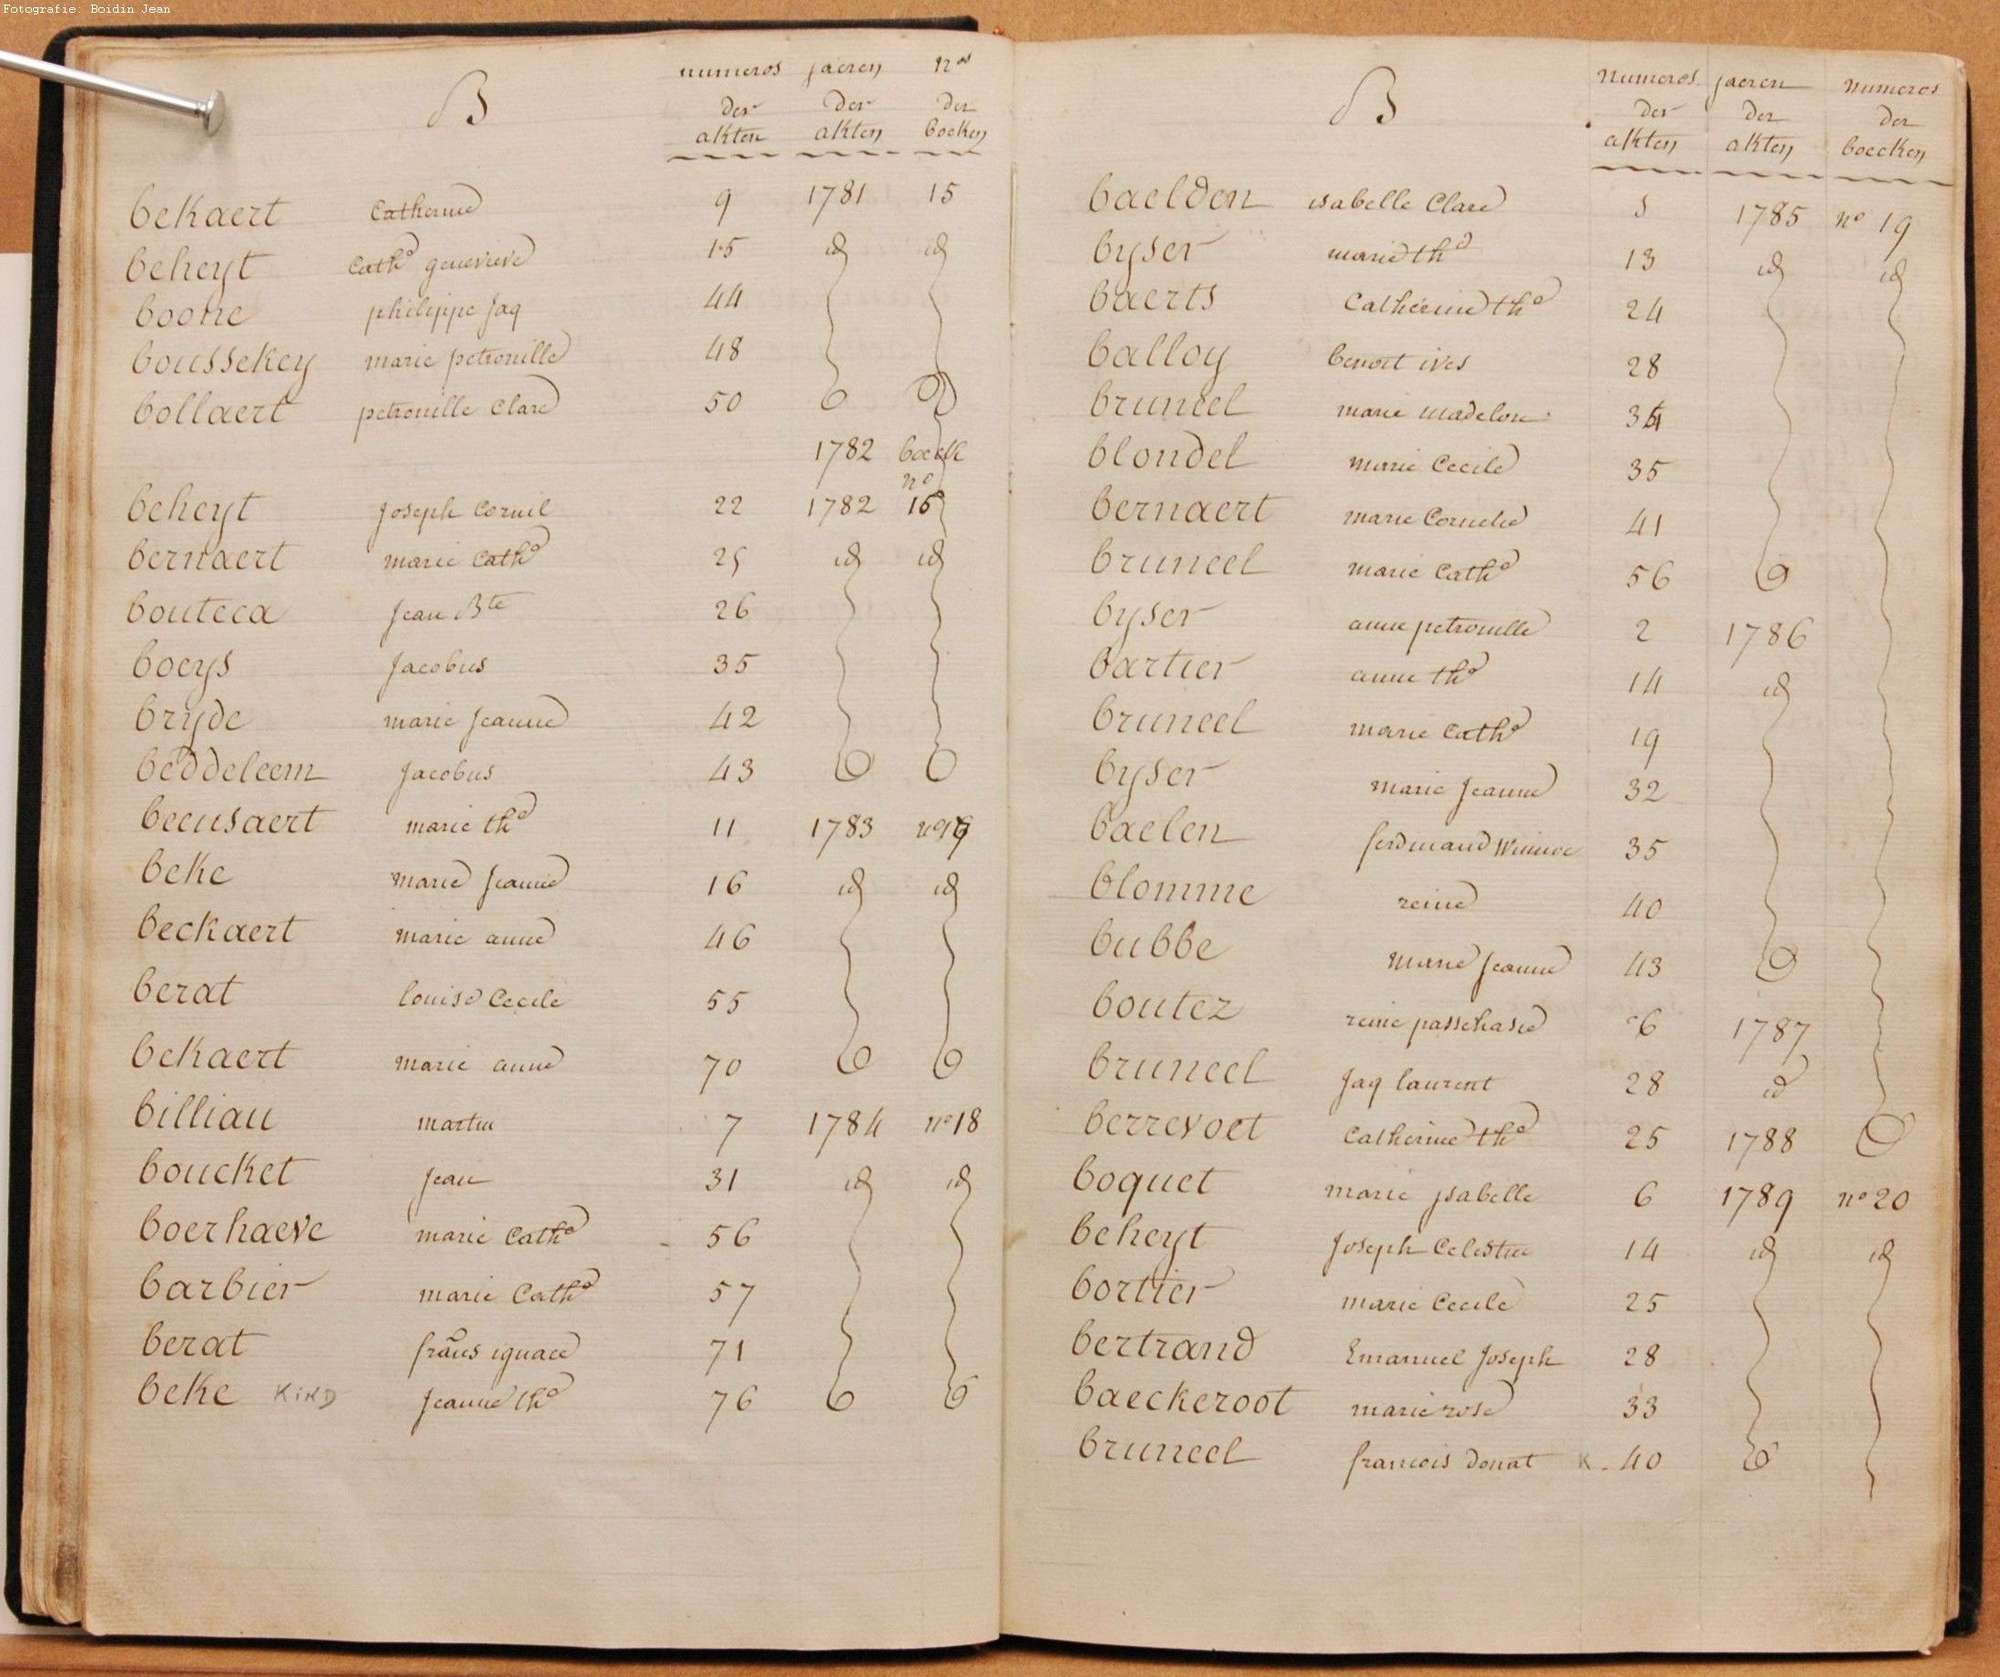 Fotografie: Boidin Jean
B numeros jaeren Nos
der der der
akten akten boeken
bekaert Catherine 9 1781 15
beheyt Cathe genevieve 15 id id
boone philippe Jaq 44
boussekey marie petronille 48
bollaert petronille Clare 50
1782 boeck
no
beheyt Joseph Cornil 22 1782 16
bernaert marie Cathe 25 id id
bouteca Jean Bte 26
boeys Jacobus 35
bryde marie Jeanne 42
beddeleem Jacobus 43
beeusaert marie the 11 1783
beke marie Jeanne 16 id id
beckaert marie anne 46
berat louise Cecile 55
bekaert marie anne 70
billiau martin 7 1784 no 18
boucket Jean 31 id id
boerhaeve marie Cathe 56
barbier marie Cathe 57
berat frans ignace 71
beke KIND Jeanne the 76
B numeros jaeren numeros
der der der
akten akten boecken
baelden isabelle Clare 5 1785 no 19
byser marie the 13 id id
baerts Catherine the 24
balloy benoit ives 28
bruneel marie madelon 34
blondel marie Cecile 35
bernaert marie Cornelie 41
bruneel marie Cathe 56
byser anne petronille 2 1786
bartier anne the 14 id
bruneel marie Cathe 19
byser marie Jeanne 32
baelen ferdinand Winnoc 35
blomme reine 40
bubbe marie Jeanne 43
boutez reine passchasie 6 1787
bruneel Jaq laurent 28 id
berrevoet Catherine the 25 1788
boquet marie ysabelle 6 1789 no 20
beheyt Joseph Celestin 14 id id
bortier marie Cecile 25
bertrand Emanuel Joseph 28
baeckeroot marie rose 33
bruneel francois donat K. 40